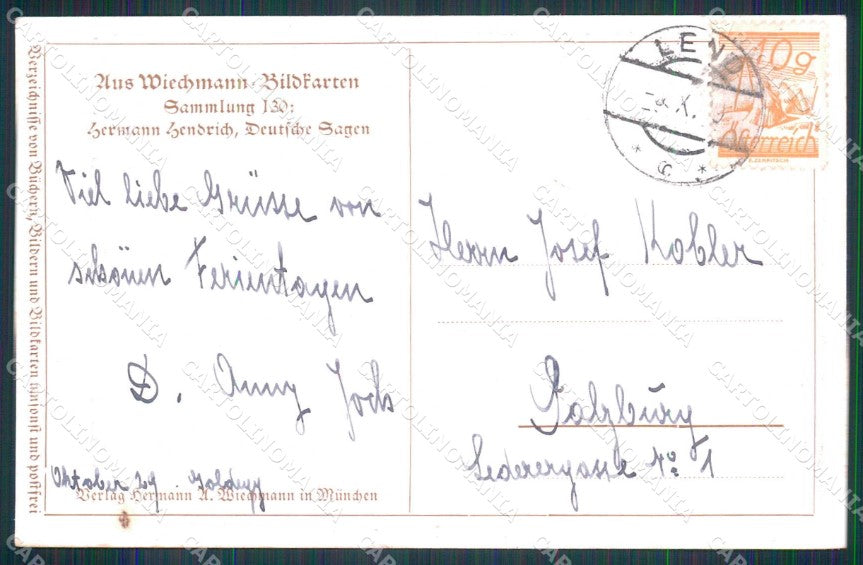 Aus Wiechmann-Bildkarten
Sammlung 130:
Hermann Hendrich, Deutsche Sagen
Viel liebe Grüsse von
schönen Ferientagen
D. Anny
Oktober 29. Goldegg
Verlag Hermann A. Wiechmann in München
Verzeichnisse von Büchern, Bildern und Bildkarten umsonst und postfrei
LEND
10g
Österreich
Herrn Josef Kobler
Salzburg
Lederergasse No 1
CARTOLINOMANIA